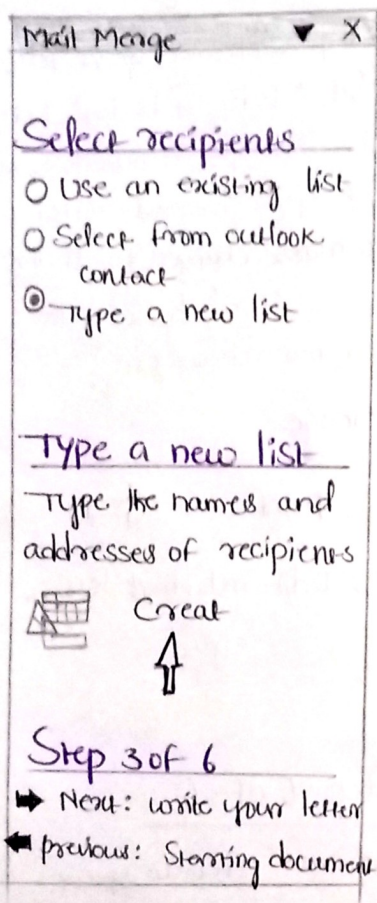 Mail Merge ▼ X
Select recipients
Use an existing list
Select from outlook
contact
Type a new list
Type a new list
Type the names and
addresses of recipients
Creat
Step 3 of 6
Next: write your letter
previous: Starting document